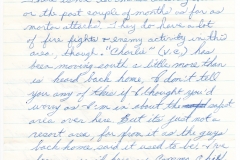 or the past couple of months as far as
mortar attacks. They do have a lot
of fire fights & enemy activity in this
area, though. "Charlie" (V.C.) has
been moving south a little more than
is heard back home. I don't tell
you any of this if I thought you'd
worry as I'm in about the safest
area over here. But its just not a
resort area, far from it as the guys
back home said it used to be. I've